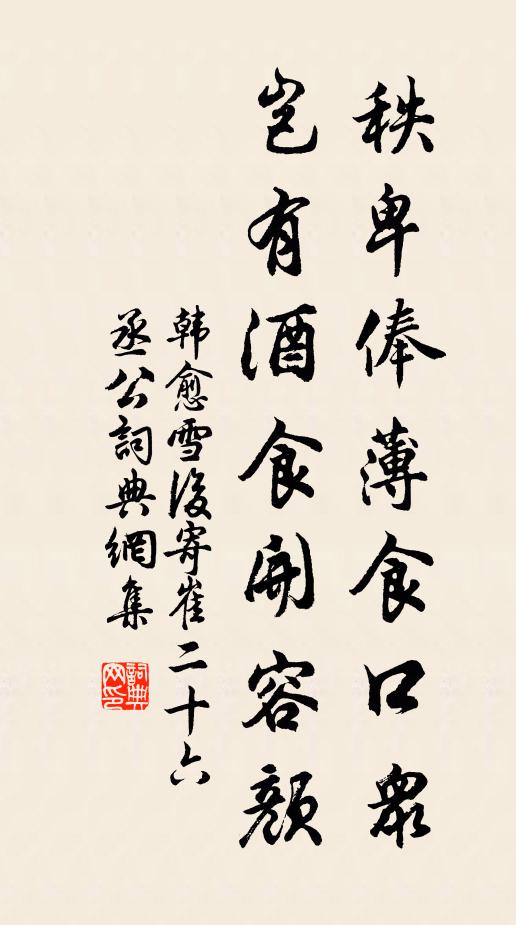 秩卑俸薄食口衆
豈有酒食開容顔
韓愈雪後寄崔二十六
丞公詞典網集
詞典
网印